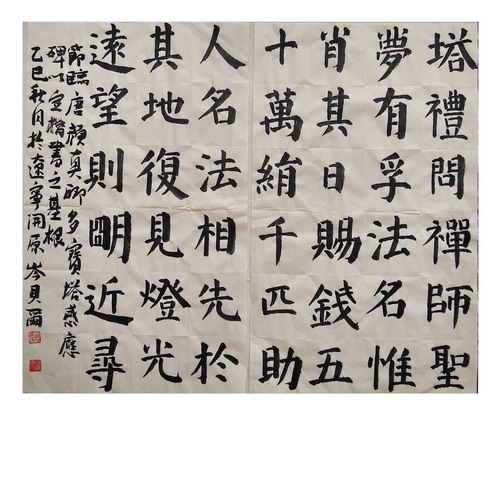 塔禮問禪師聖
夢有孚法名惟
肖其日賜錢五
十萬絹千匹助
人名法相先於
其地復見燈光
遠望則明近尋
節臨唐顏真卿多寶塔感應
碑以定楷書之基根
乙巳秋月於遼寧開原岑貝爾